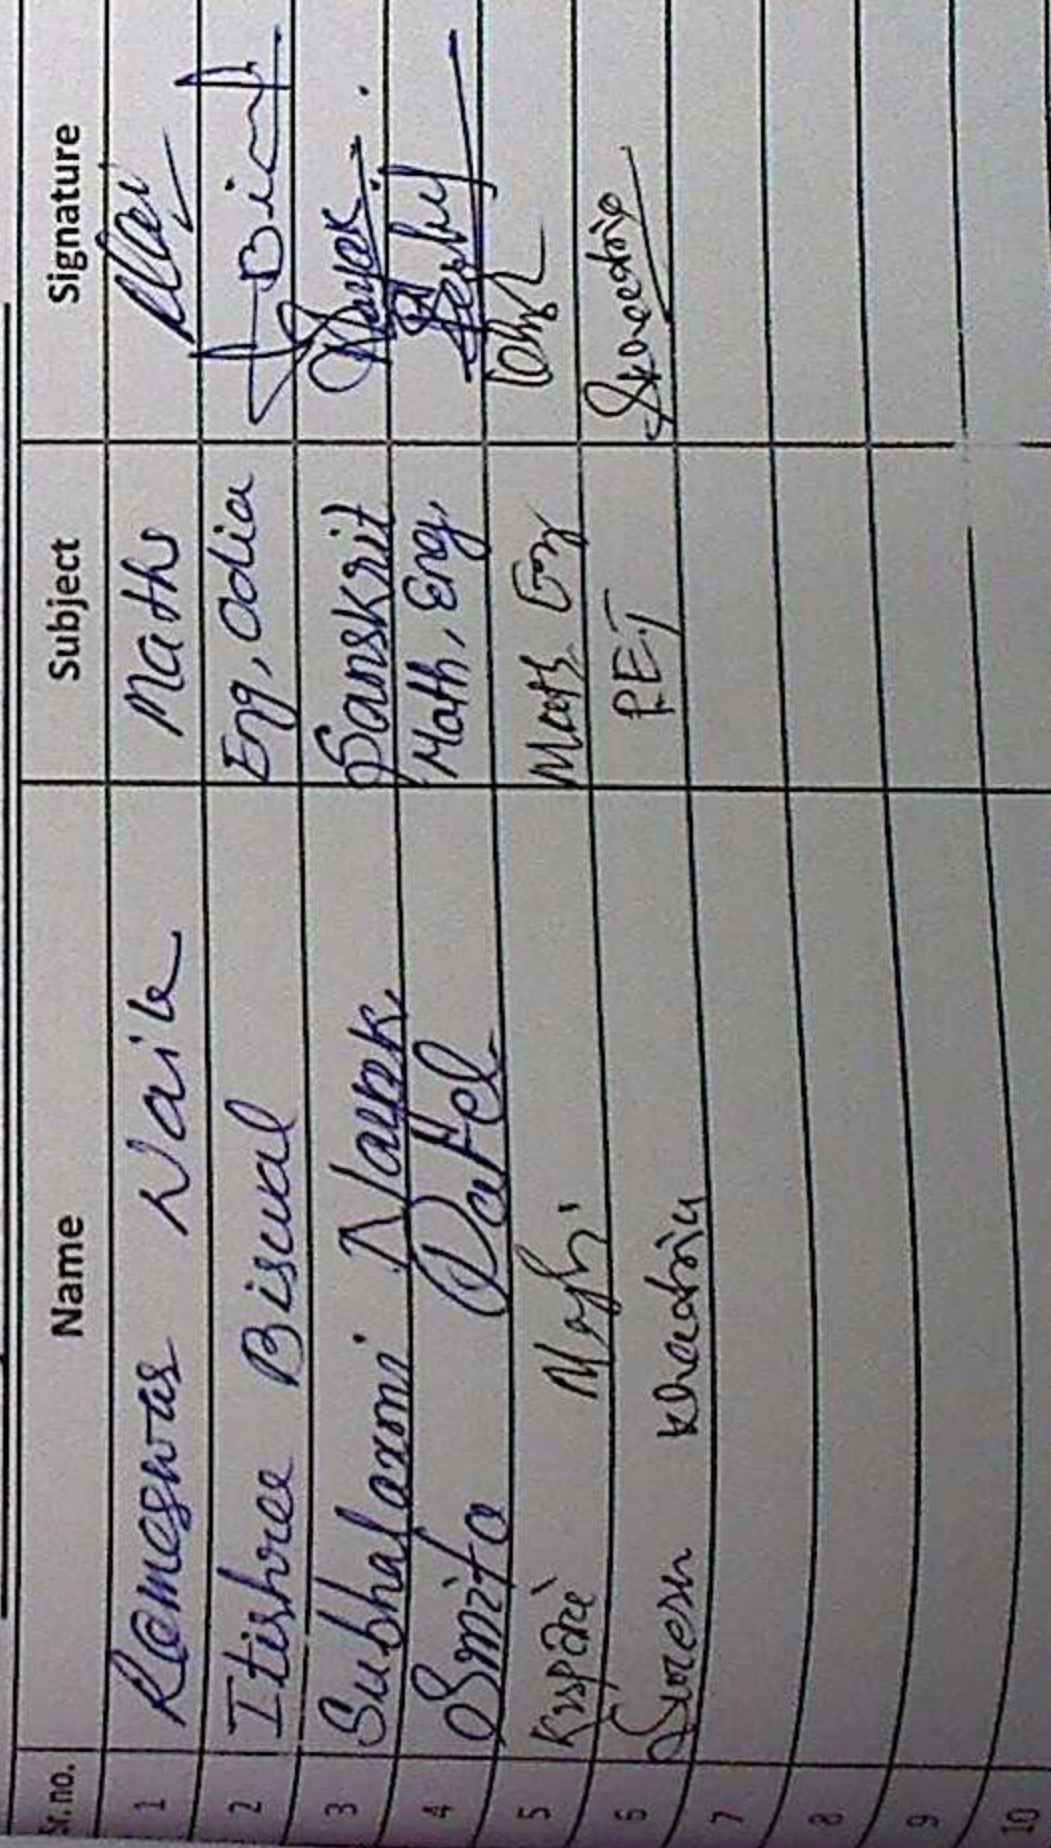 Sr. no. Name Subject Signature
1 Rameswar Naik Maths
2 Itishree Biswal Eng, Odia
3 Subhalaxmi Nayak Sanskrit Nayak
4 Smita Patel Math, Eng.
5 Majhi Math Eng
6 Suresh Khadia PET
7
8
9
10